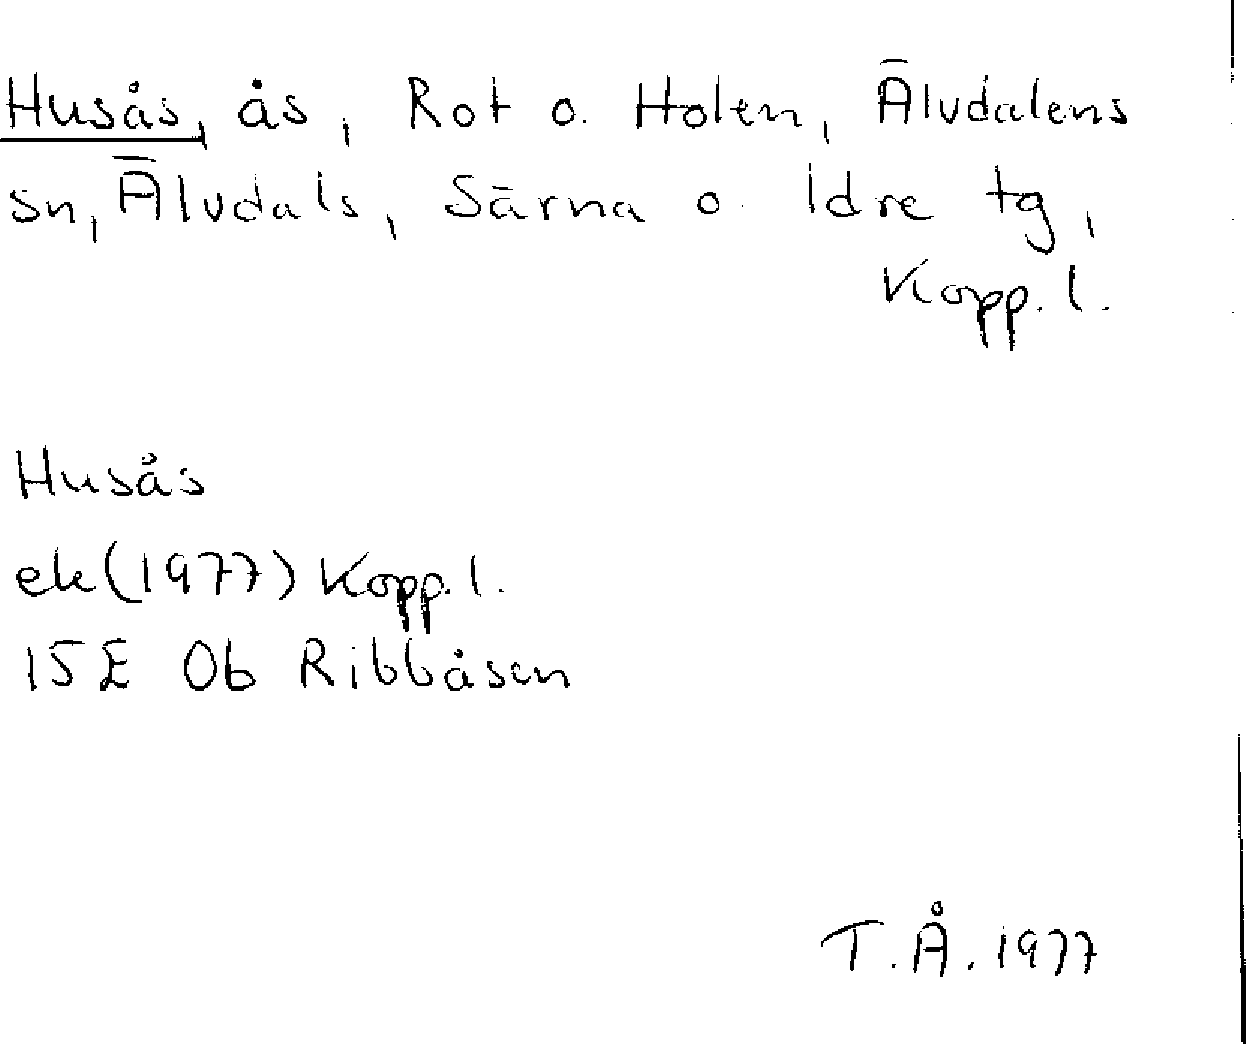 Husås, ås, Rot o. Holen, Älvdalens
sn, Älvdals, Särna o. Idre tg,
Kopp. l.
Husås
ek (1977) Kopp. l.
15E 0b Ribbåsen
T.Å. 1977